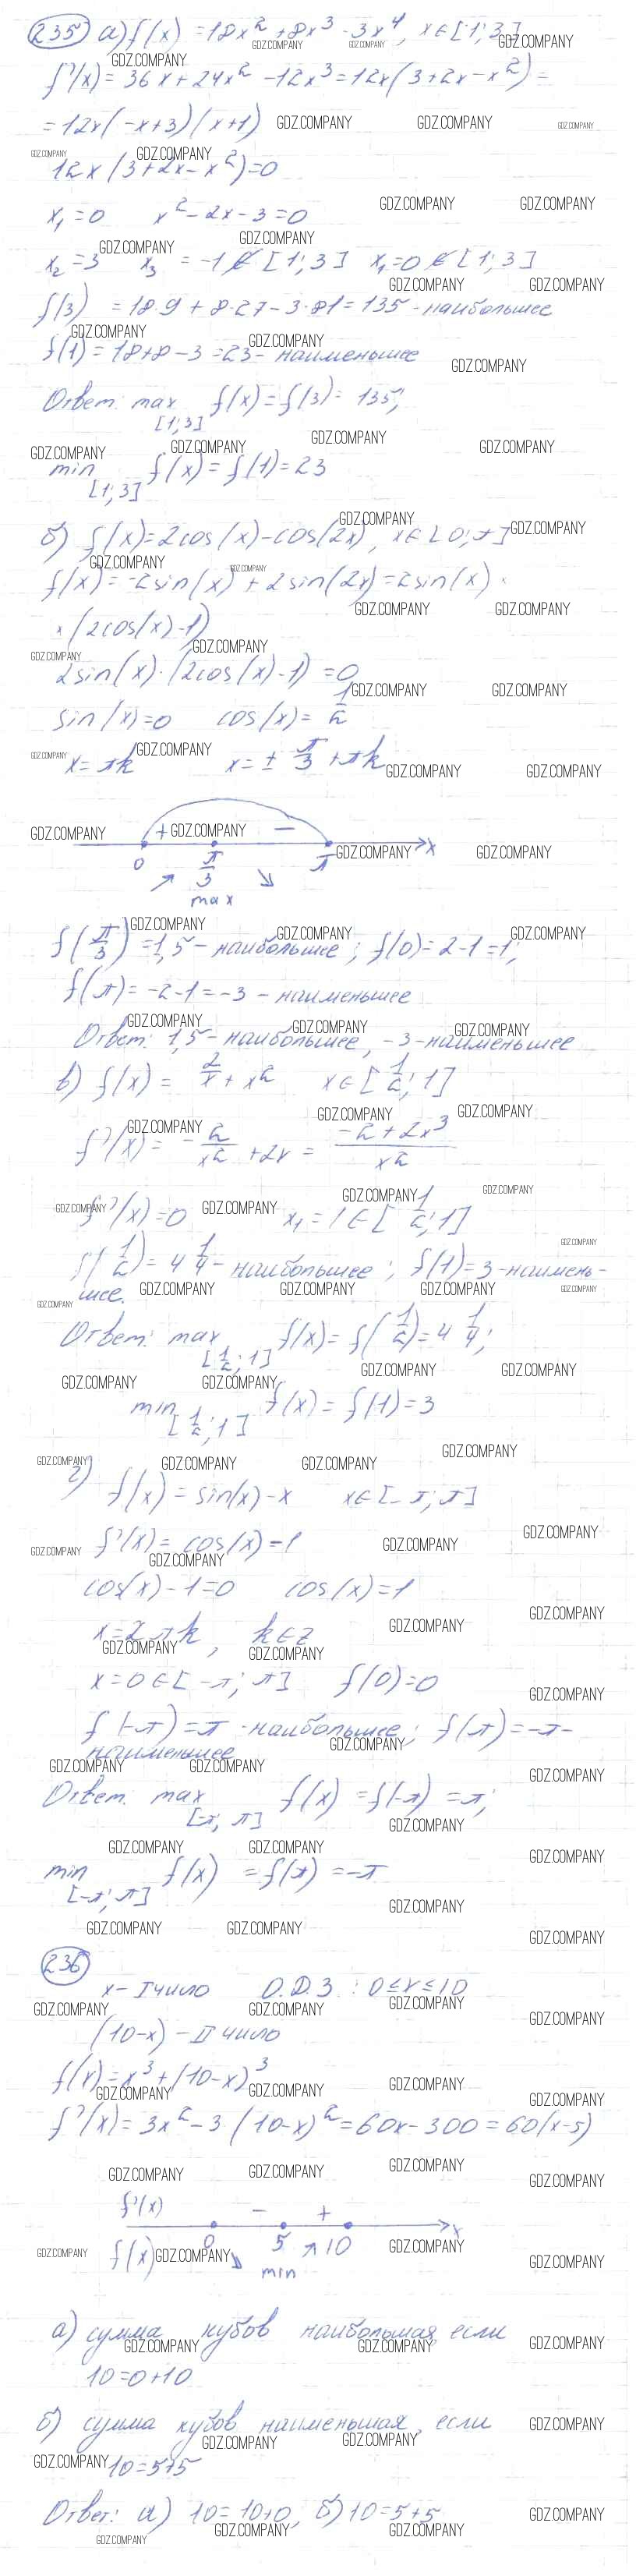 235 а) f(x) = 18x² + 8x³ - 3x⁴, x∈[1;3]
f'(x) = 36x + 24x² - 12x³ = 12x(3+2x-x²) =
= 12x(-x+3)(x+1)
12x(3+2x-x²)=0
x₁=0 x²-2x-3=0
x₂=3 x₃ = -1 ∉ [1;3] x₁=0 ∉ [1;3]
f(3) = 18·9 + 8·27 - 3·81 = 135 - наибольшее
f(1) = 18+8-3 = 23 - наименьшее
Ответ: max f(x) = f(3) = 135;
[1;3]
min f(x) = f(1) = 23
[1;3]
б) f(x) = 2cos(x) - cos(2x), x∈[0;π]
f(x) = -2sin(x) + 2sin(2x) = 2sin(x) ×
× (2cos(x)-1)
2sin(x)·(2cos(x)-1) = 0
sin(x)=0 cos(x) = 1/2
x = πk x = ± π/3 + πk
+ − x
0 π/3 π
max
f(π/3) = 1,5 - наибольшее; f(0) = 2-1 = 1;
f(π) = -2-1 = -3 - наименьшее
Ответ: 1,5 - наибольшее, -3 - наименьшее
в) f(x) = 2/x + x² x∈[1/2; 1]
f'(x) = -2/x² + 2x = (-2+2x³)/x²
f'(x)=0 x₁ = 1 ∈ [1/2; 1]
f(1/2) = 4 1/4 - наибольшее; f(1) = 3 - наимень-
шее.
Ответ: max f(x) = f(1/2) = 4 1/4;
[1/2; 1]
min f(x) = f(1) = 3
[1/2; 1]
г) f(x) = sin(x) - x x∈[-π; π]
f'(x) = cos(x) - 1
cos(x) - 1 = 0 cos(x) = 1
x = 2πk, k∈Z
x=0∈[-π; π] f(0)=0
f(-π) = π - наибольшее; f(π) = -π -
наименьшее
Ответ: max f(x) = f(-π) = π;
[-π; π]
min f(x) = f(π) = -π
[-π; π]
236
x - I число О.Д.З.: 0≤x≤10
(10-x) - II число
f(x) = x³ + (10-x)³
f'(x) = 3x² - 3(10-x)² = 60x - 300 = 60(x-5)
f'(x) − + x
0 5 10
f(x) min
а) сумма кубов наибольшая, если
10=0+10
б) сумма кубов наименьшая, если
10=5+5
Ответ: а) 10=10+0, б) 10=5+5
GDZ.COMPANY